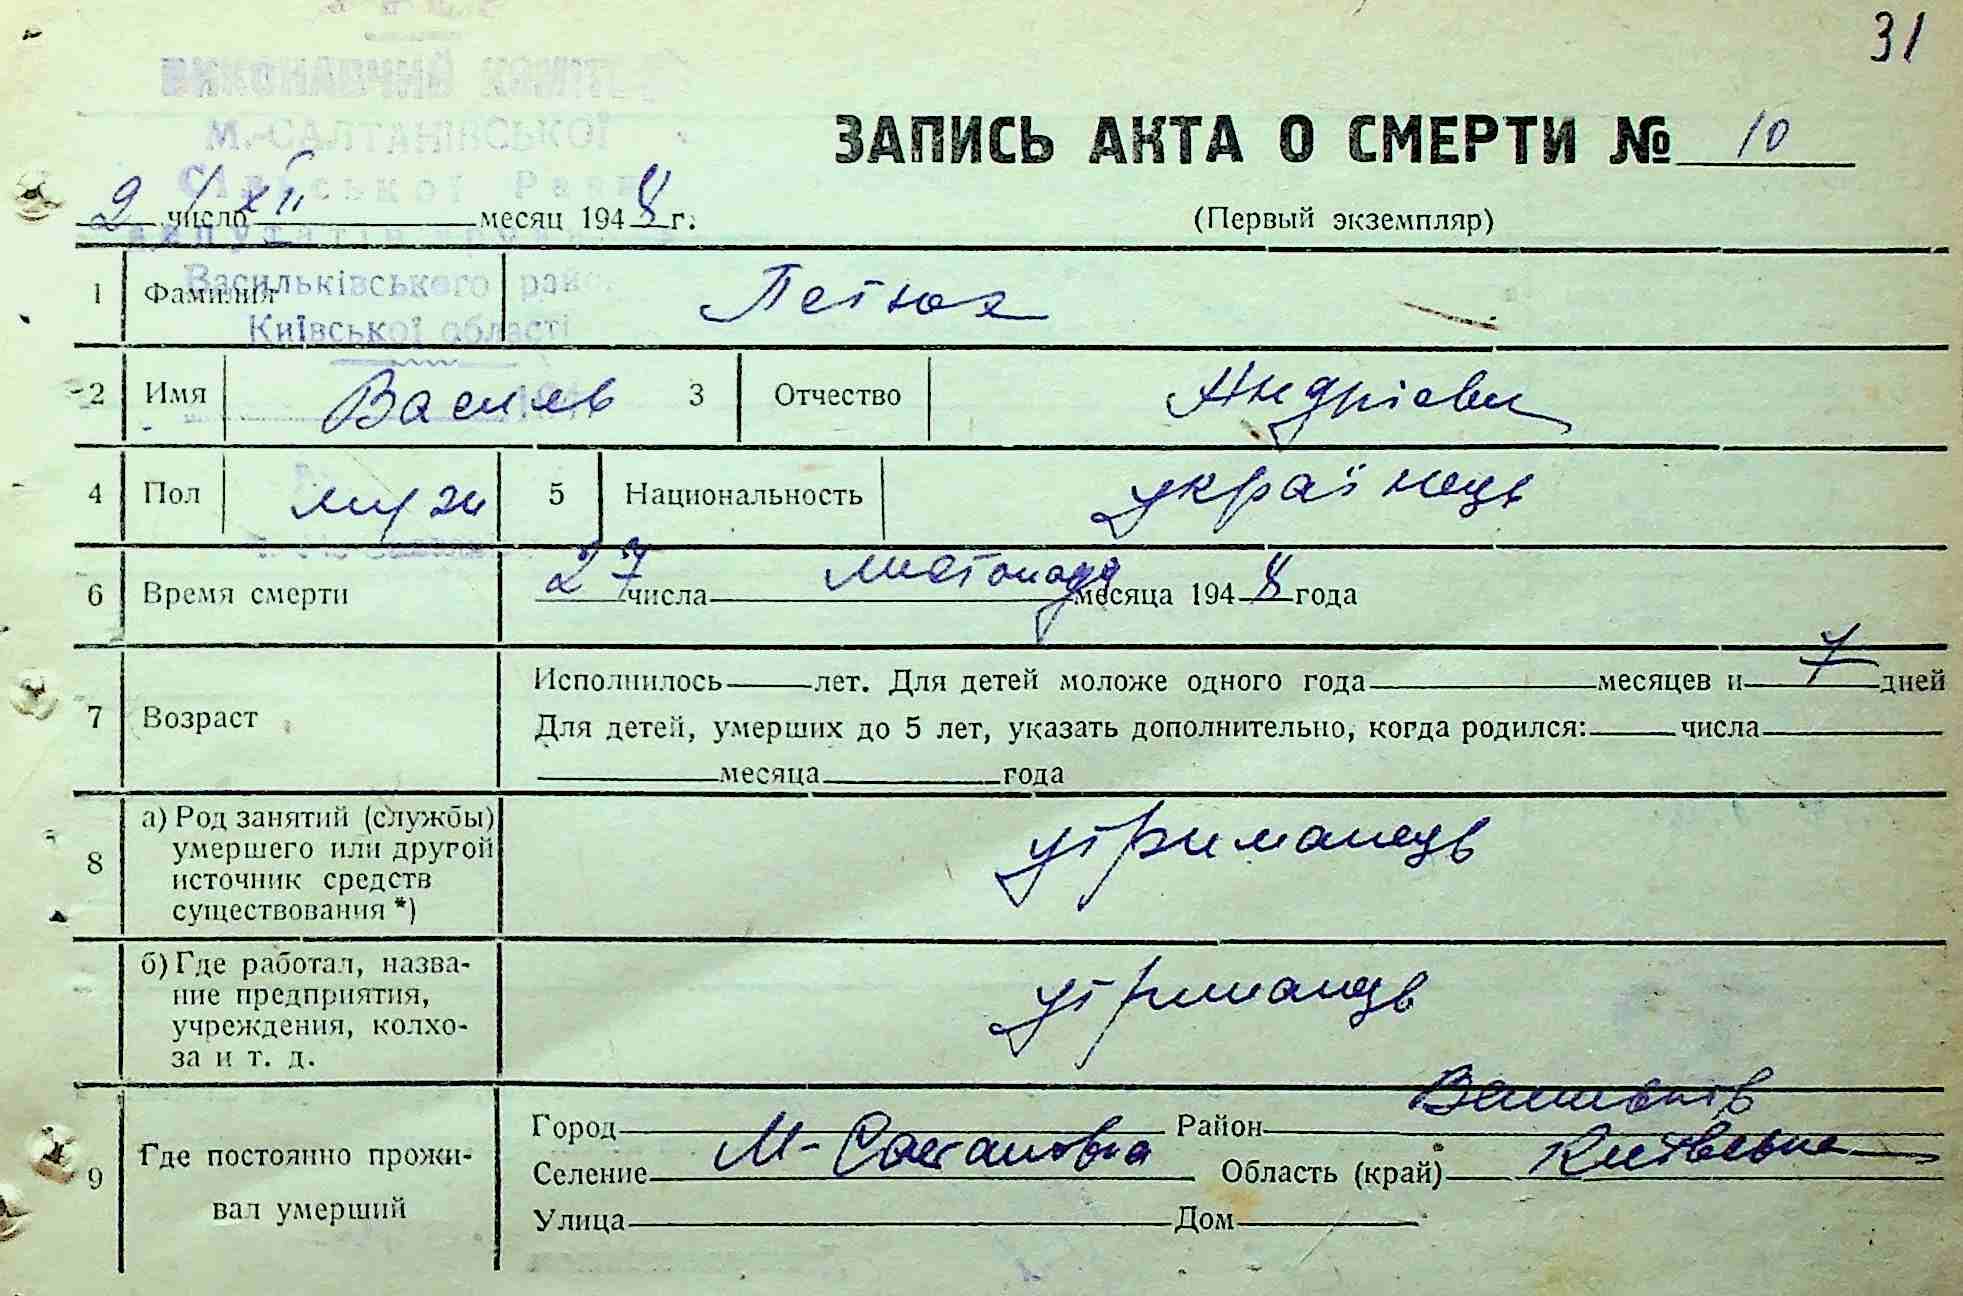 31
ВИКОНАВЧИЙ КОМІТЕТ
М.-САЛТАНІВСЬКОЇ
Сільської Ради
депутатів трудящих
Васильківського району
Київської області
ЗАПИСЬ АКТА О СМЕРТИ № 10
2 число XII месяц 1948 г.
(Первый экземпляр)
1 Фамилия
2 Имя Василь 3 Отчество Андрієви
4 Пол муж 5 Национальность українець
6 Время смерти 27 числа листопада месяца 1948 года
7 Возраст
Исполнилось лет. Для детей моложе одного года месяцев и 7 дней
Для детей, умерших до 5 лет, указать дополнительно, когда родился: числа
месяца года
8 а) Род занятий (службы) умершего или другой источник средств существования *) утриманець
б) Где работал, название предприятия, учреждения, колхоза и т. д. утриманець
9 Где постоянно проживал умерший
Город Район Васильків
Селение М-Салтановка Область (край) Київська
Улица Дом